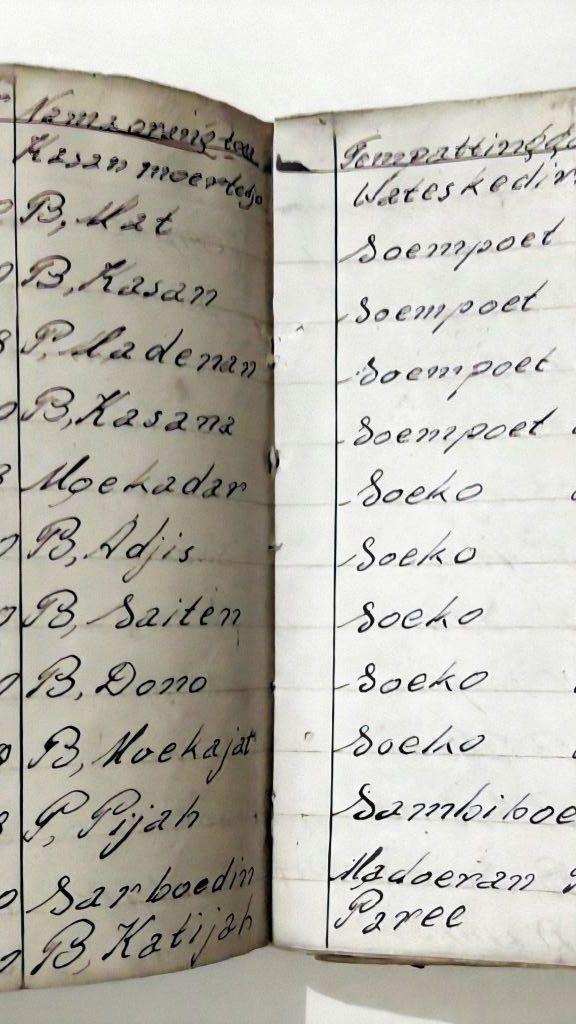 Nama orang toea
Kasan moeredjo
B, Mat
B, Kasan
P, Madenan
B, Kasana
Moekadar
B, Adjis
B, Saiten
B, Dono
B, Moekajat
P, Pijah
Sarboedin
B, Katijah
Tempatting
Wates kedir
Soempoet
Soempoet
Soempoet
Soempoet
Soeko
Soeko
Soeko
Soeko
Soeko
Sambiboe
Madoeran
Paree